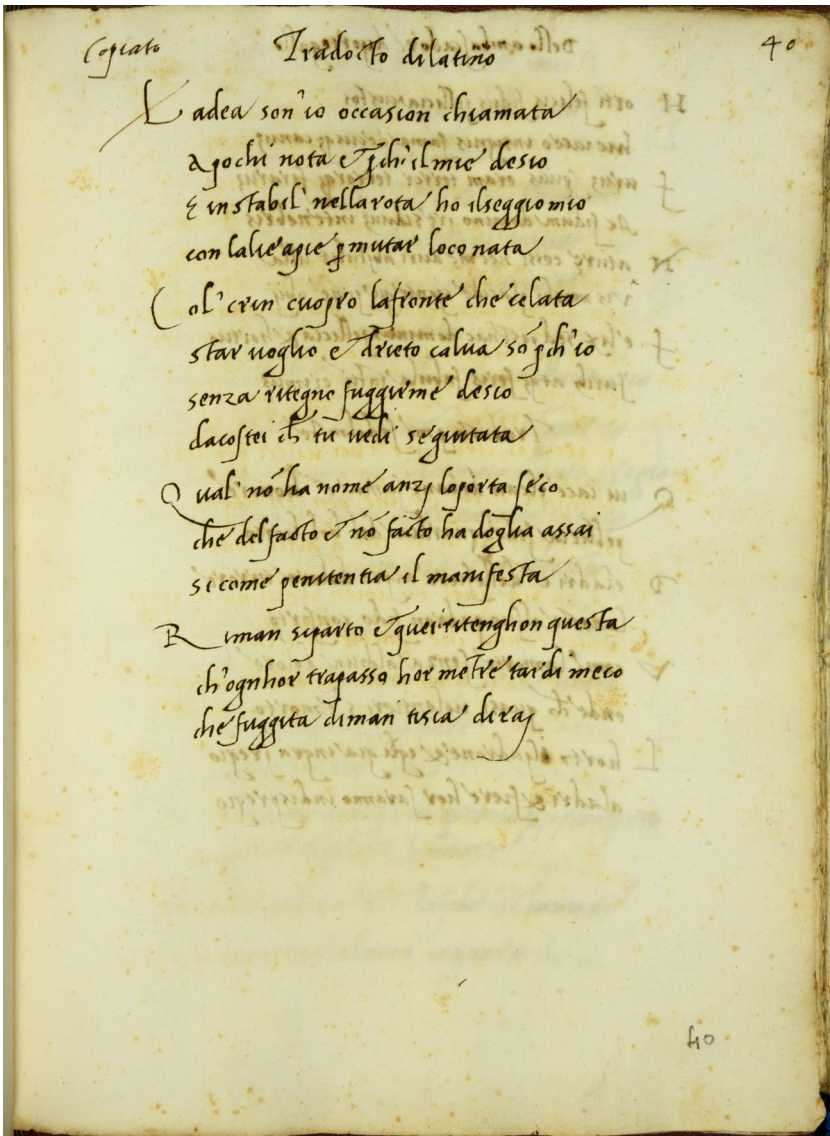 Copiato Tradocto di latino 40
La dea son' io occasion chiamata
A pochi nota et p̄ch' il mie desio
È instabil' nella rota ho il seggio mio
con l'alie a pie p̱ mutar loco nata
Col' crin cuopro la fronte che celata
star voglio e drieto calva sō p̄ch'io
senza ritegno fuggirme desio
da costei ch̄ tu vedi seguitata
Qual' nō ha nome anzi lo porta seco
che del facto et nō facto ha doglia assai
si come penitentia il manifesta
Riman si parto et quei ritenghon questa
ch'ogn hor trapasso hor metre tardi meco
che fuggita di man tisia dirai
40